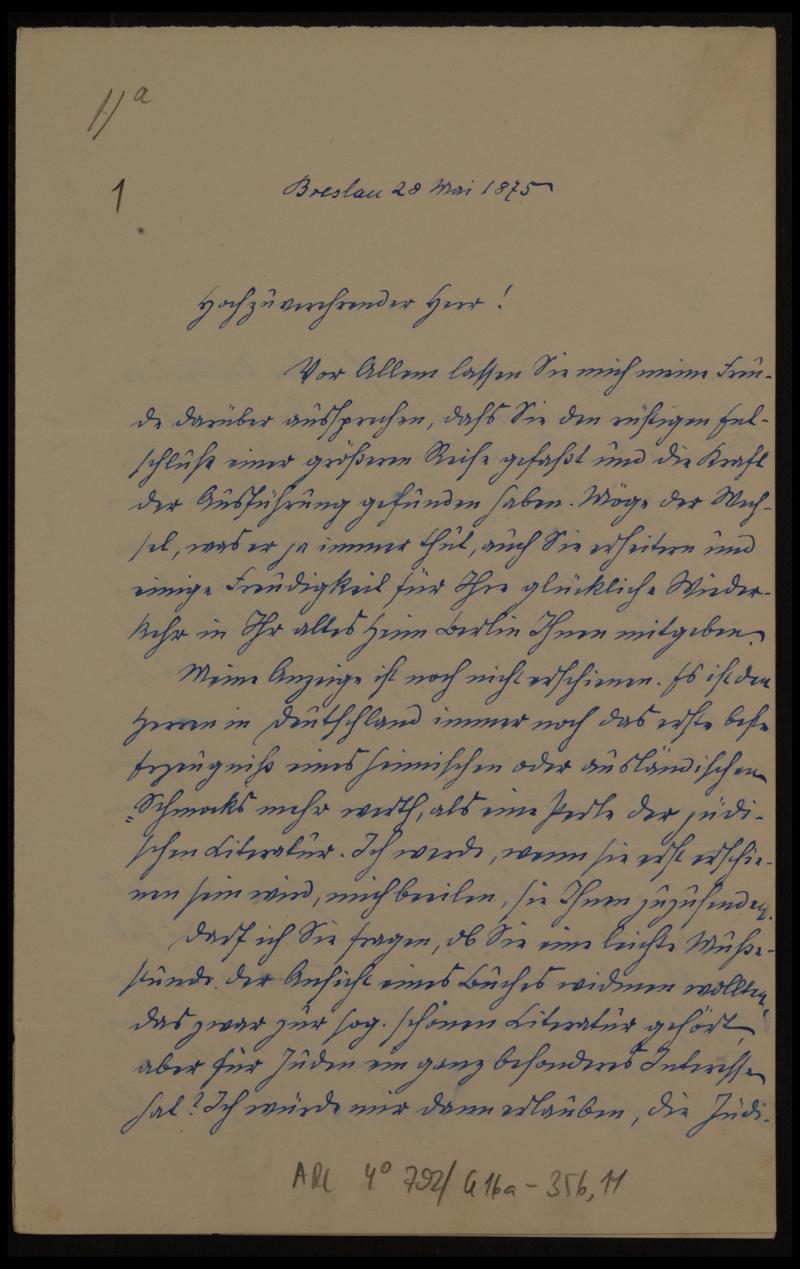 11a
1
Breslau 28 Mai 1875
Hochzuverehrender Herr!
Vor Allem lassen Sie mich meine Freu-
de darüber aussprechen, daß Sie den rüstigen Ent-
schluß einer größeren Reise gefaßt und die Kraft
der Ausführung gefunden haben. Möge der Wech-
sel, was er ja immer thut, auch Sie erheitern und
einige Freudigkeit für Ihre glückliche Wieder-
kehr in Ihr altes Heim Berlin Ihnen mitgeben.
Meine Anzeige ist noch nicht erschienen. Es ist den
Herren in Deutschland immer noch das erste beste
Erzeugniß eines heimischen oder ausländischen
Schmocks mehr werth, als eine Perle der jüdi-
schen Literatur. Ich werde, wenn sie erst erschie-
nen sein wird, mich beeilen, sie Ihnen zuzusenden.
Darf ich Sie fragen, ob Sie eine leichte Muße-
stunde der Ansicht eines Buches widmen wollten,
das zwar zur sog. schönen Literatur gehört,
aber für Juden ein ganz besonderes Interesse
hat? Ich würde mir dann erlauben, die Jüdi-
ARC 4° 792/ G16a - 356, 11